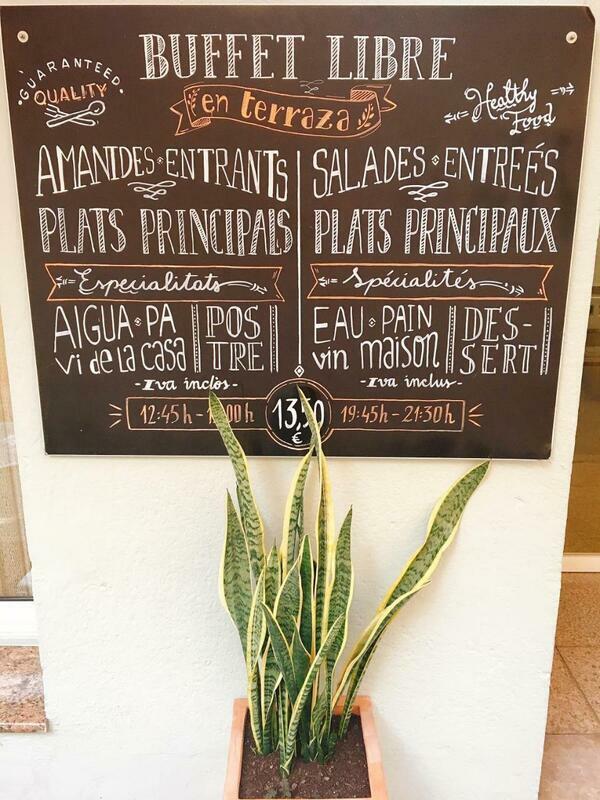 GUARANTEED
QUALITY
BUFFET LIBRE
en terraza
Healthy
Food
AMANIDES · ENTRANTS
PLATS PRINCIPALS
Especialitats
AIGUA · PA
Vi de la casa
POS
TRE
-Iva inclòs-
12:45h -
SALADES · ENTREÉS
PLATS PRINCIPAUX
Spécialités
EAU · PAIN
vin maison
DES-
SERT
-Iva inclus-
13,50
€
19:45h - 21:30h